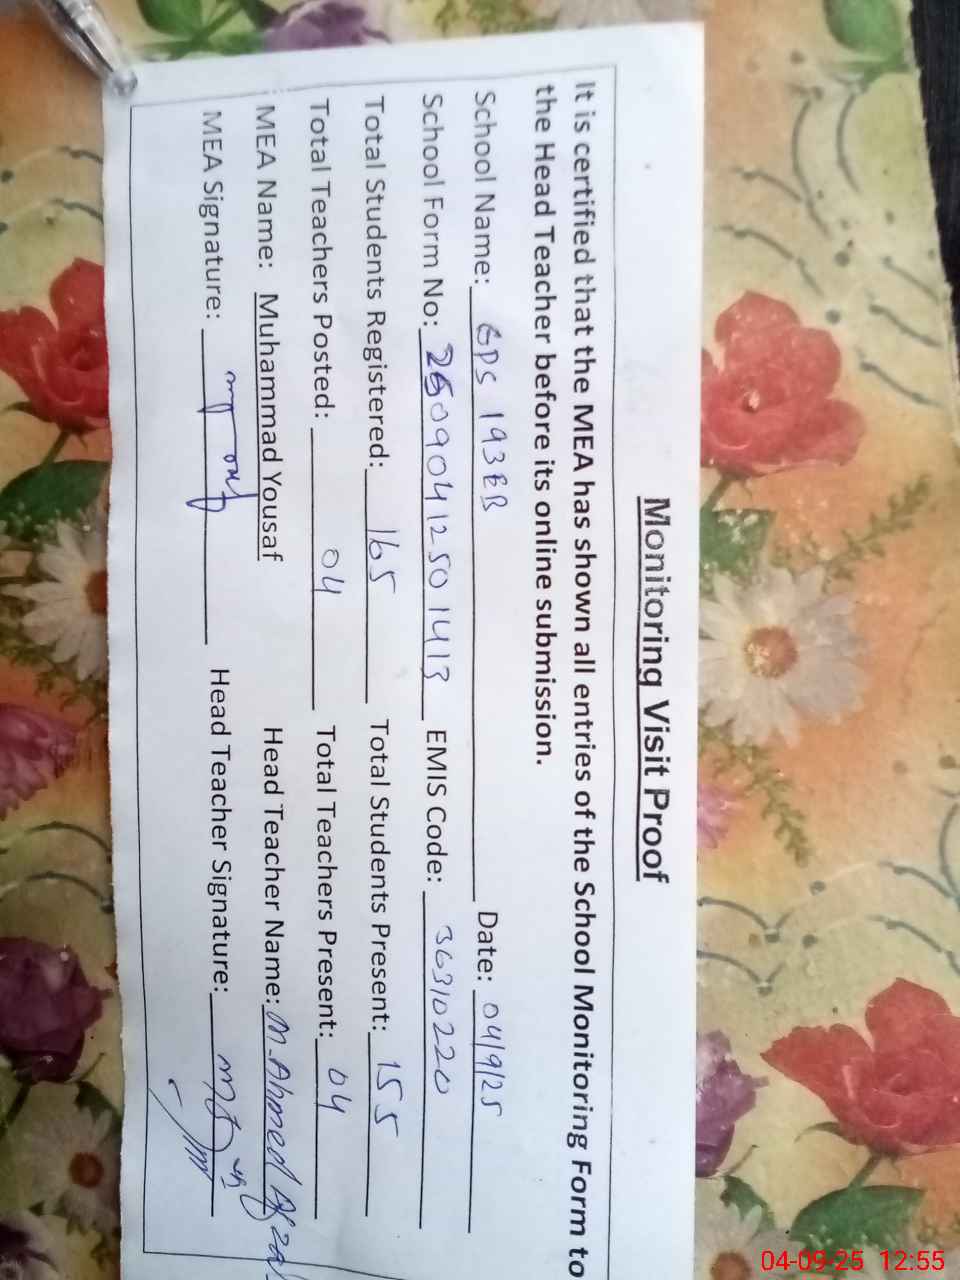 Monitoring Visit Proof
It is certified that the MEA has shown all entries of the School Monitoring Form to
the Head Teacher before its online submission.
School Name: GPS 193EB Date: 04/9/25
School Form No: 26090412501413 EMIS Code: 36310220
Total Students Registered: 165 Total Students Present: 155
Total Teachers Posted: 04 Total Teachers Present: 04
MEA Name: Muhammad Yousaf Head Teacher Name: M. Ahmed Afzal
MEA Signature: Head Teacher Signature:
04-09-25 12:55